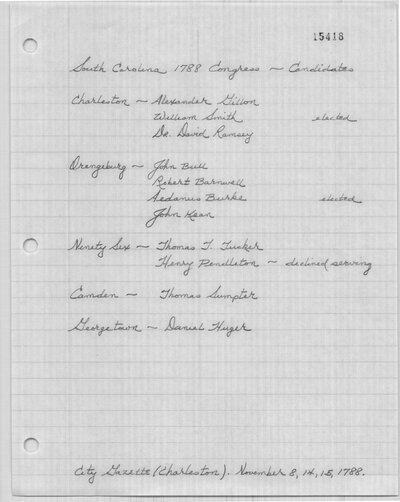 15418
South Carolina 1788 Congress ~ Candidates
Charleston ~ Alexander Gillon
William Smith elected
Dr. David Ramsey
Orangeburg ~ John Bull
Robert Barnwell
Aedanus Burke elected
John Kean
Ninety Six ~ Thomas T. Tucker
Henry Pendleton ~ declined serving
Camden ~ Thomas Sumpter
Georgetown ~ Daniel Huger
City Gazette (Charleston). November 8, 14, 15, 1788.